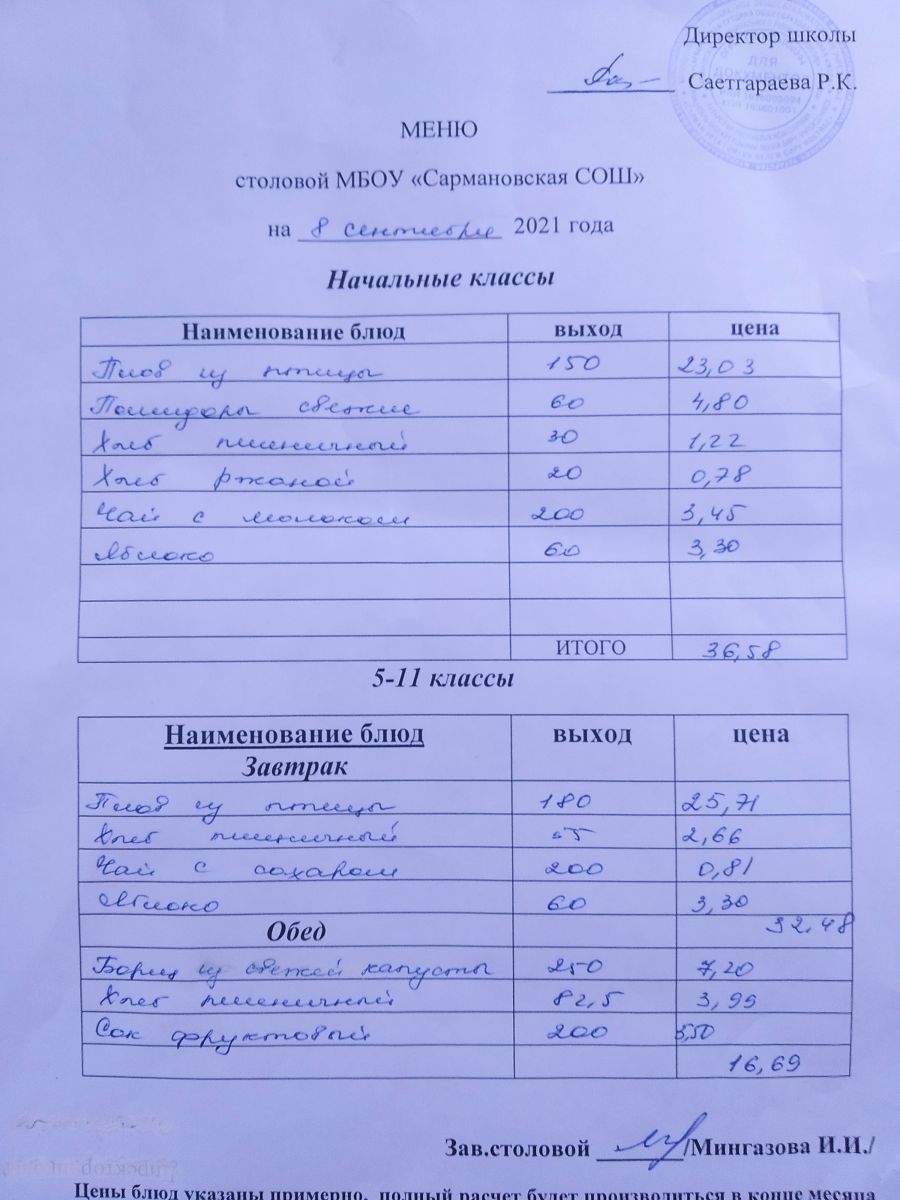 Директор школы
Саетгараева Р.К.
ДЛЯ
ДОКУМЕНТОВ
МЕНЮ
столовой МБОУ «Сармановская СОШ»
на 8 сентября 2021 года
Начальные классы
Наименование блюд выход цена
Плов из птицы 150 23,03
Помидоры свежие 60 4,80
Хлеб пшеничный 30 1,22
Хлеб ржаной 20 0,78
Чай с молоком 200 3,45
Яблоко 60 3,30
ИТОГО 36,58
5-11 классы
Наименование блюд выход цена
Завтрак
Плов из птицы 180 25,71
Хлеб пшеничный 55 2,66
Чай с сахаром 200 0,81
Яблоко 60 3,30
Обед 32.48
Борщ из свежей капусты 250 7,20
Хлеб пшеничный 82,5 3,99
Сок фруктовый 200 5,50
16,69
Зав.столовой /Мингазова И.И./
Цены блюд указаны примерно, полный расчет будет производиться в конце месяца